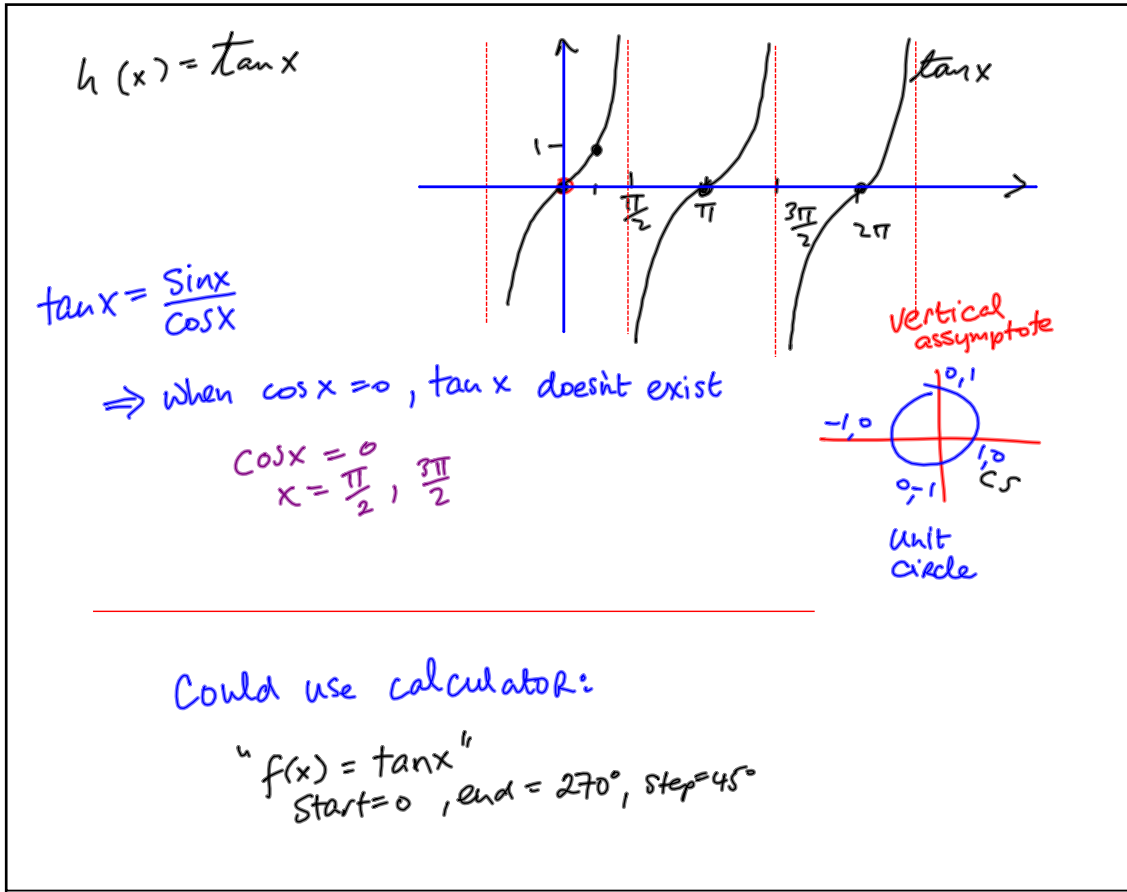 h(x) = tan x
tan x
1
π/2
π
3π/2
2π
tan x = sinx/cosx
vertical
assymptote
⇒ when cos x = 0, tan x doesn't exist
cosx = 0
x = π/2, 3π/2
0,1
-1,0
1,0
0,-1
C S
Unit
circle
Could use calculator:
"f(x) = tanx"
Start=0, end = 270°, step=45°